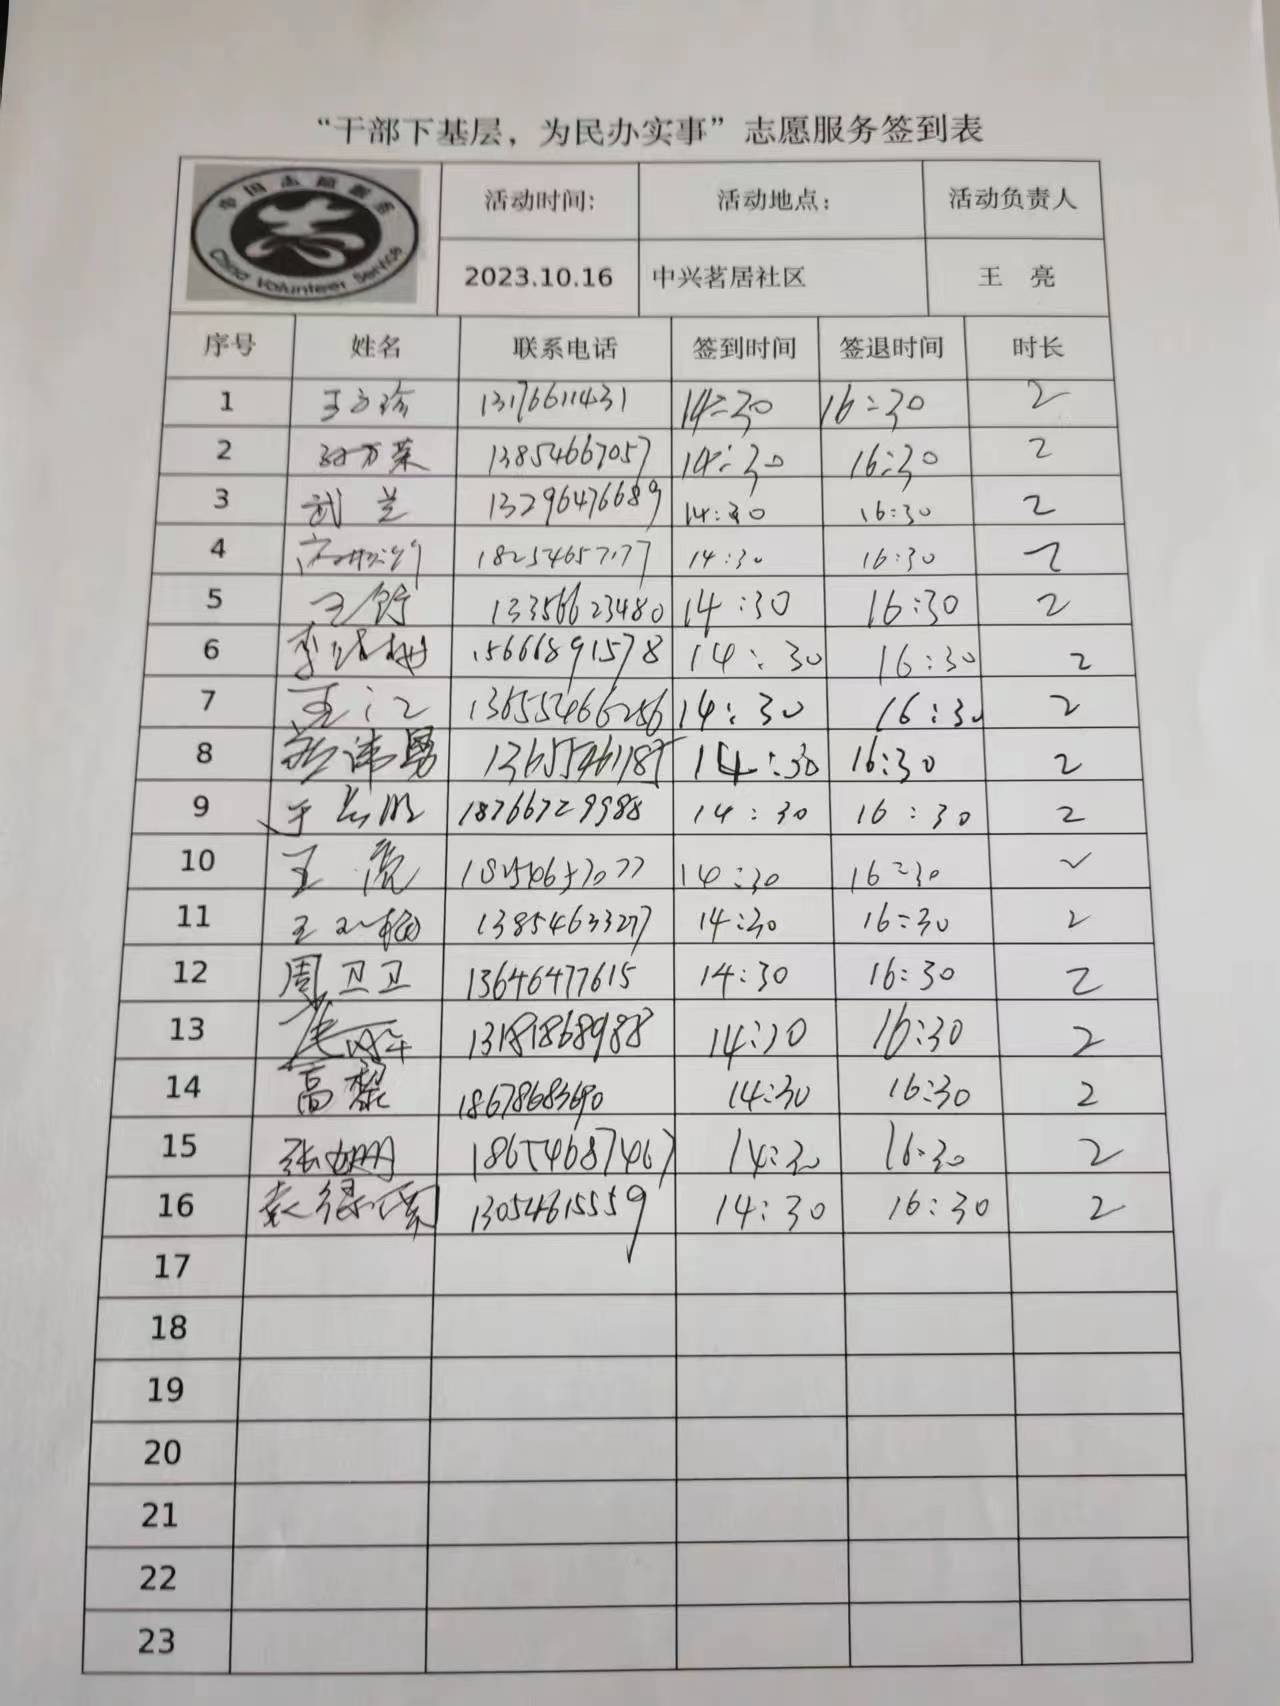 “干部下基层，为民办实事”志愿服务签到表
中国志愿服务
China Volunteer Service
活动时间: 活动地点: 活动负责人
2023.10.16 中兴茗居社区 王 亮
序号 姓名 联系电话 签到时间 签退时间 时长
1 13176611431 14:30 16:30 2
2 13854667057 14:30 16:30 2
3 武兰 13296476689 14:30 16:30 2
4 18254657177 14:30 16:30 2
5 13356623480 14:30 16:30 2
6 15666891578 14:30 16:30 2
7 王江 13655466256 14:30 16:30 2
8 14:30 16:30 2
9 18766729988 14:30 16:30 2
10 王亮 14:30 16:30 2
11 13854633277 14:30 16:30 2
12 周卫卫 13646477615 14:30 16:30 2
13 13181868988 14:30 16:30 2
14 高黎 18678683690 14:30 16:30 2
15 18654687467 14:30 16:30 2
16 13054615559 14:30 16:30 2
17
18
19
20
21
22
23